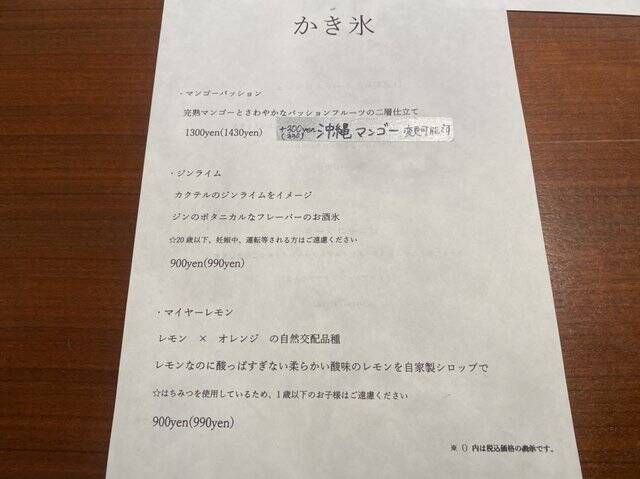 かき氷
・マンゴーパッション
完熟マンゴーとさわやかなパッションフルーツの二層仕立て
1300yen(1430yen)
+300yen
(330)
沖縄マンゴー 変更可能
・ジンライム
カクテルのジンライムをイメージ
ジンのボタニカルなフレーバーのお酒氷
☆20歳以下、妊娠中、運転等される方はご遠慮ください
900yen(990yen)
・マイヤーレモン
レモン × オレンジ の自然交配品種
レモンなのに酸っぱすぎない柔らかい酸味のレモンを自家製シロップで
☆はちみつを使用しているため、1歳以下のお子様はご遠慮ください
900yen(990yen)
※ () 内は税込価格の表示です。